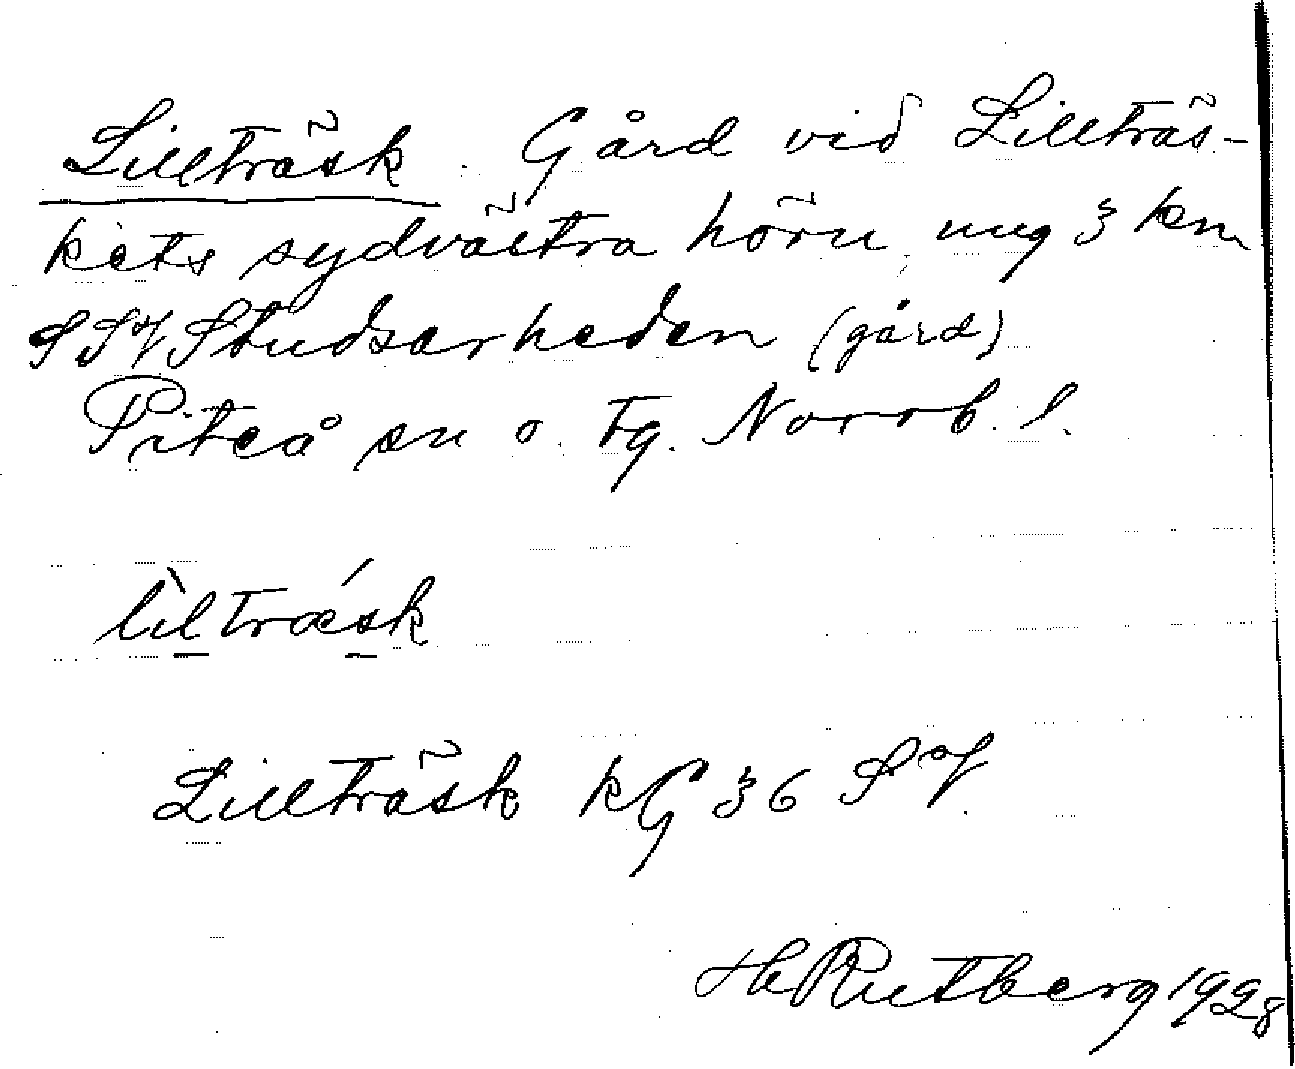 Lillträsk. Gård vid Lillträs-
kets sydvästra hörn, ung 3 km
SSV Studsarheden (gård)
Piteå sn o. tg. Norrb. l.
lìltrǽsk
Lillträsk kG 36 SV.
H Rutberg 1928